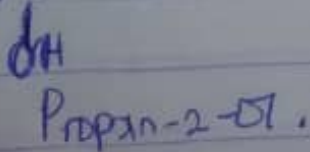 OH
Propan-2-ol.